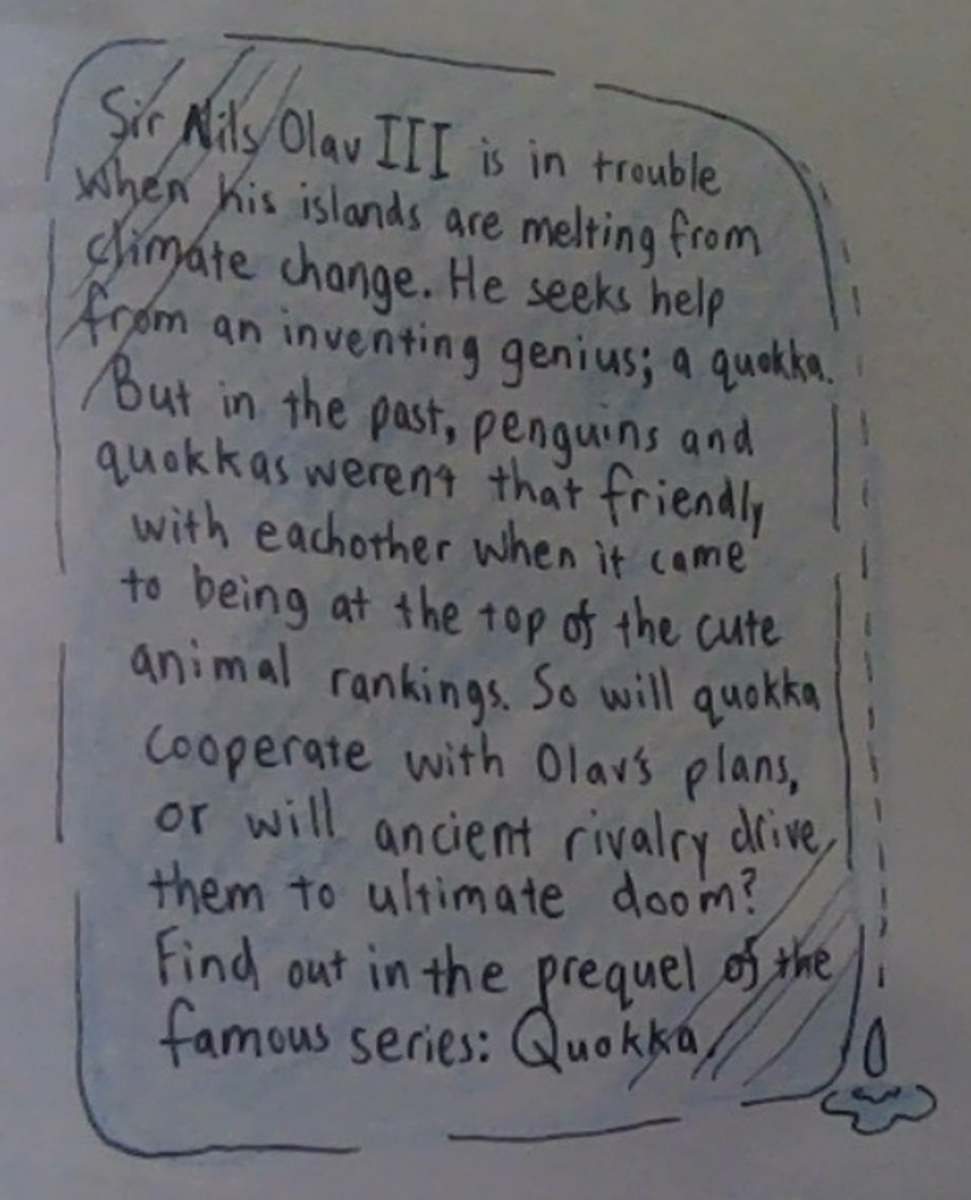 Sir Nils Olav III is in trouble
when his islands are melting from
climate change. He seeks help
from an inventing genius; a quokka.
But in the past, penguins and
quokkas werent that friendly
with eachother when it came
to being at the top of the cute
animal rankings. So will quokka
cooperate with Olav's plans,
or will ancient rivalry drive
them to ultimate doom?
Find out in the prequel of the
famous series: Quokka.